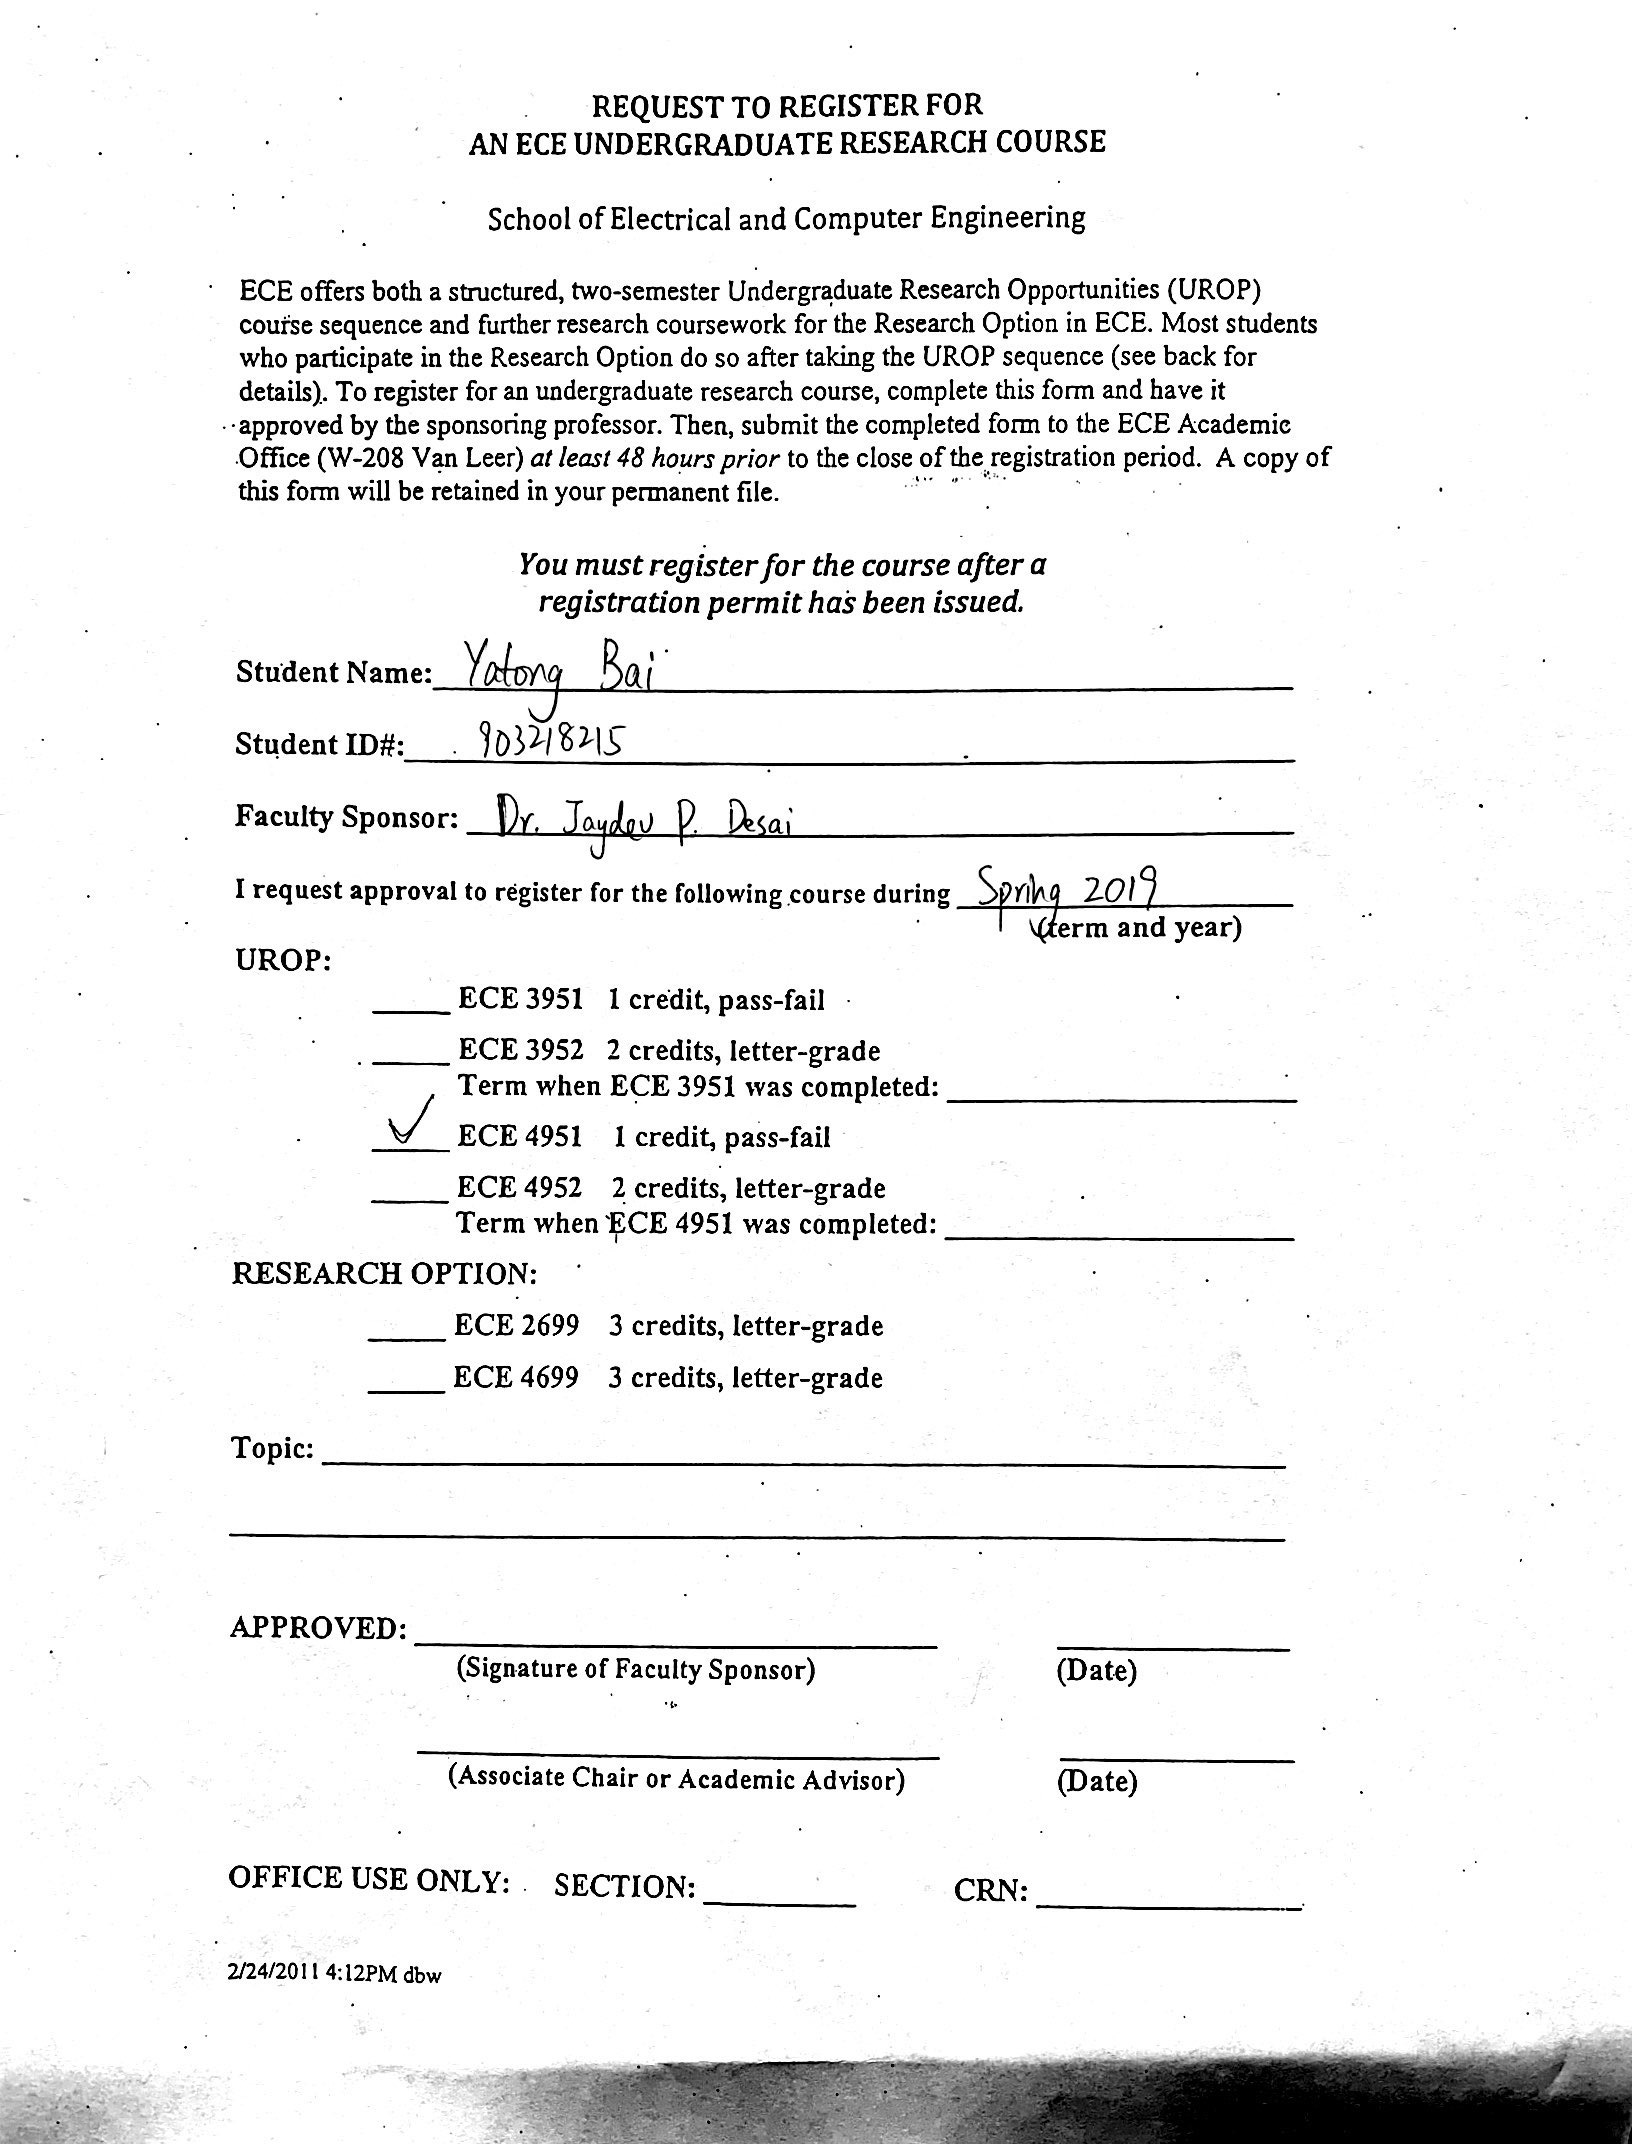 REQUEST TO REGISTER FOR
AN ECE UNDERGRADUATE RESEARCH COURSE
School of Electrical and Computer Engineering
ECE offers both a structured, two-semester Undergraduate Research Opportunities (UROP)
course sequence and further research coursework for the Research Option in ECE. Most students
who participate in the Research Option do so after taking the UROP sequence (see back for
details). To register for an undergraduate research course, complete this form and have it
approved by the sponsoring professor. Then, submit the completed form to the ECE Academic
Office (W-208 Van Leer) at least 48 hours prior to the close of the registration period. A copy of
this form will be retained in your permanent file.
You must register for the course after a
registration permit has been issued.
Student Name: Yatong Bai
Student ID#: 903218215
Faculty Sponsor: Dr. Jaydev P. Desai
I request approval to register for the following course during Spring 2019
(term and year)
UROP:
ECE 3951 1 credit, pass-fail
ECE 3952 2 credits, letter-grade
Term when ECE 3951 was completed:
✓ ECE 4951 1 credit, pass-fail
ECE 4952 2 credits, letter-grade
Term when ECE 4951 was completed:
RESEARCH OPTION:
ECE 2699 3 credits, letter-grade
ECE 4699 3 credits, letter-grade
Topic:
APPROVED:
(Signature of Faculty Sponsor) (Date)
(Associate Chair or Academic Advisor) (Date)
OFFICE USE ONLY: SECTION: CRN:
2/24/2011 4:12PM dbw